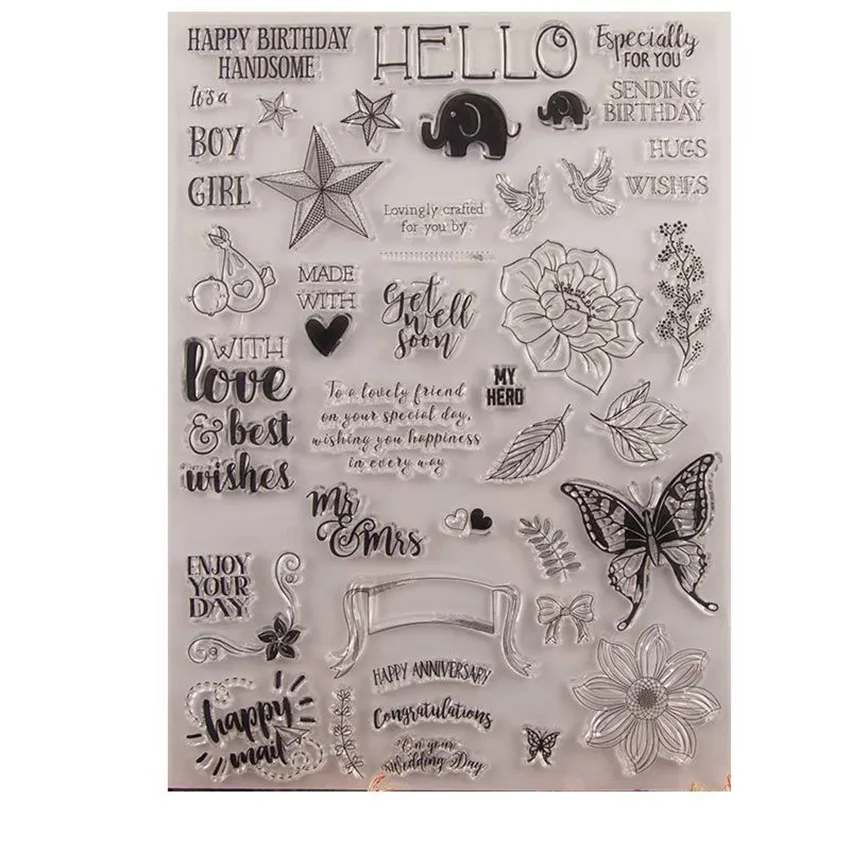 HAPPY BIRTHDAY
HANDSOME
HELLO
Especially
FOR YOU
It's a
BOY
GIRL
SENDING
BIRTHDAY
HUGS
WISHES
Lovingly crafted
for you by
MADE
WITH
Get
well
soon
WITH
love
& best
wishes
MY
HERO
To a lovely friend
on your special day,
wishing you happiness
in every way
Mr
& Mrs
ENJOY
YOUR
DAY
HAPPY ANNIVERSARY
Congratulations
On your
Wedding Day
happy
mail